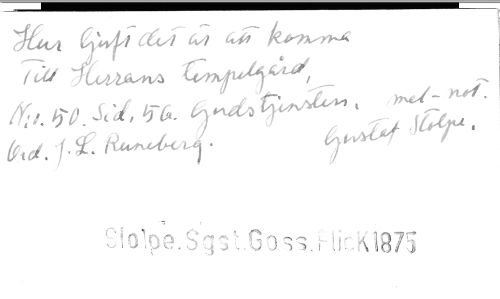 Hur ljuft det är att komma
Till Herrans tempelgård,
No. 50. Sid. 56. Gudstjensten. mel-not.
Ord. J. L. Runeberg. Gustaf Stolpe.
Stolpe.Sgst.Goss.FlicK1875